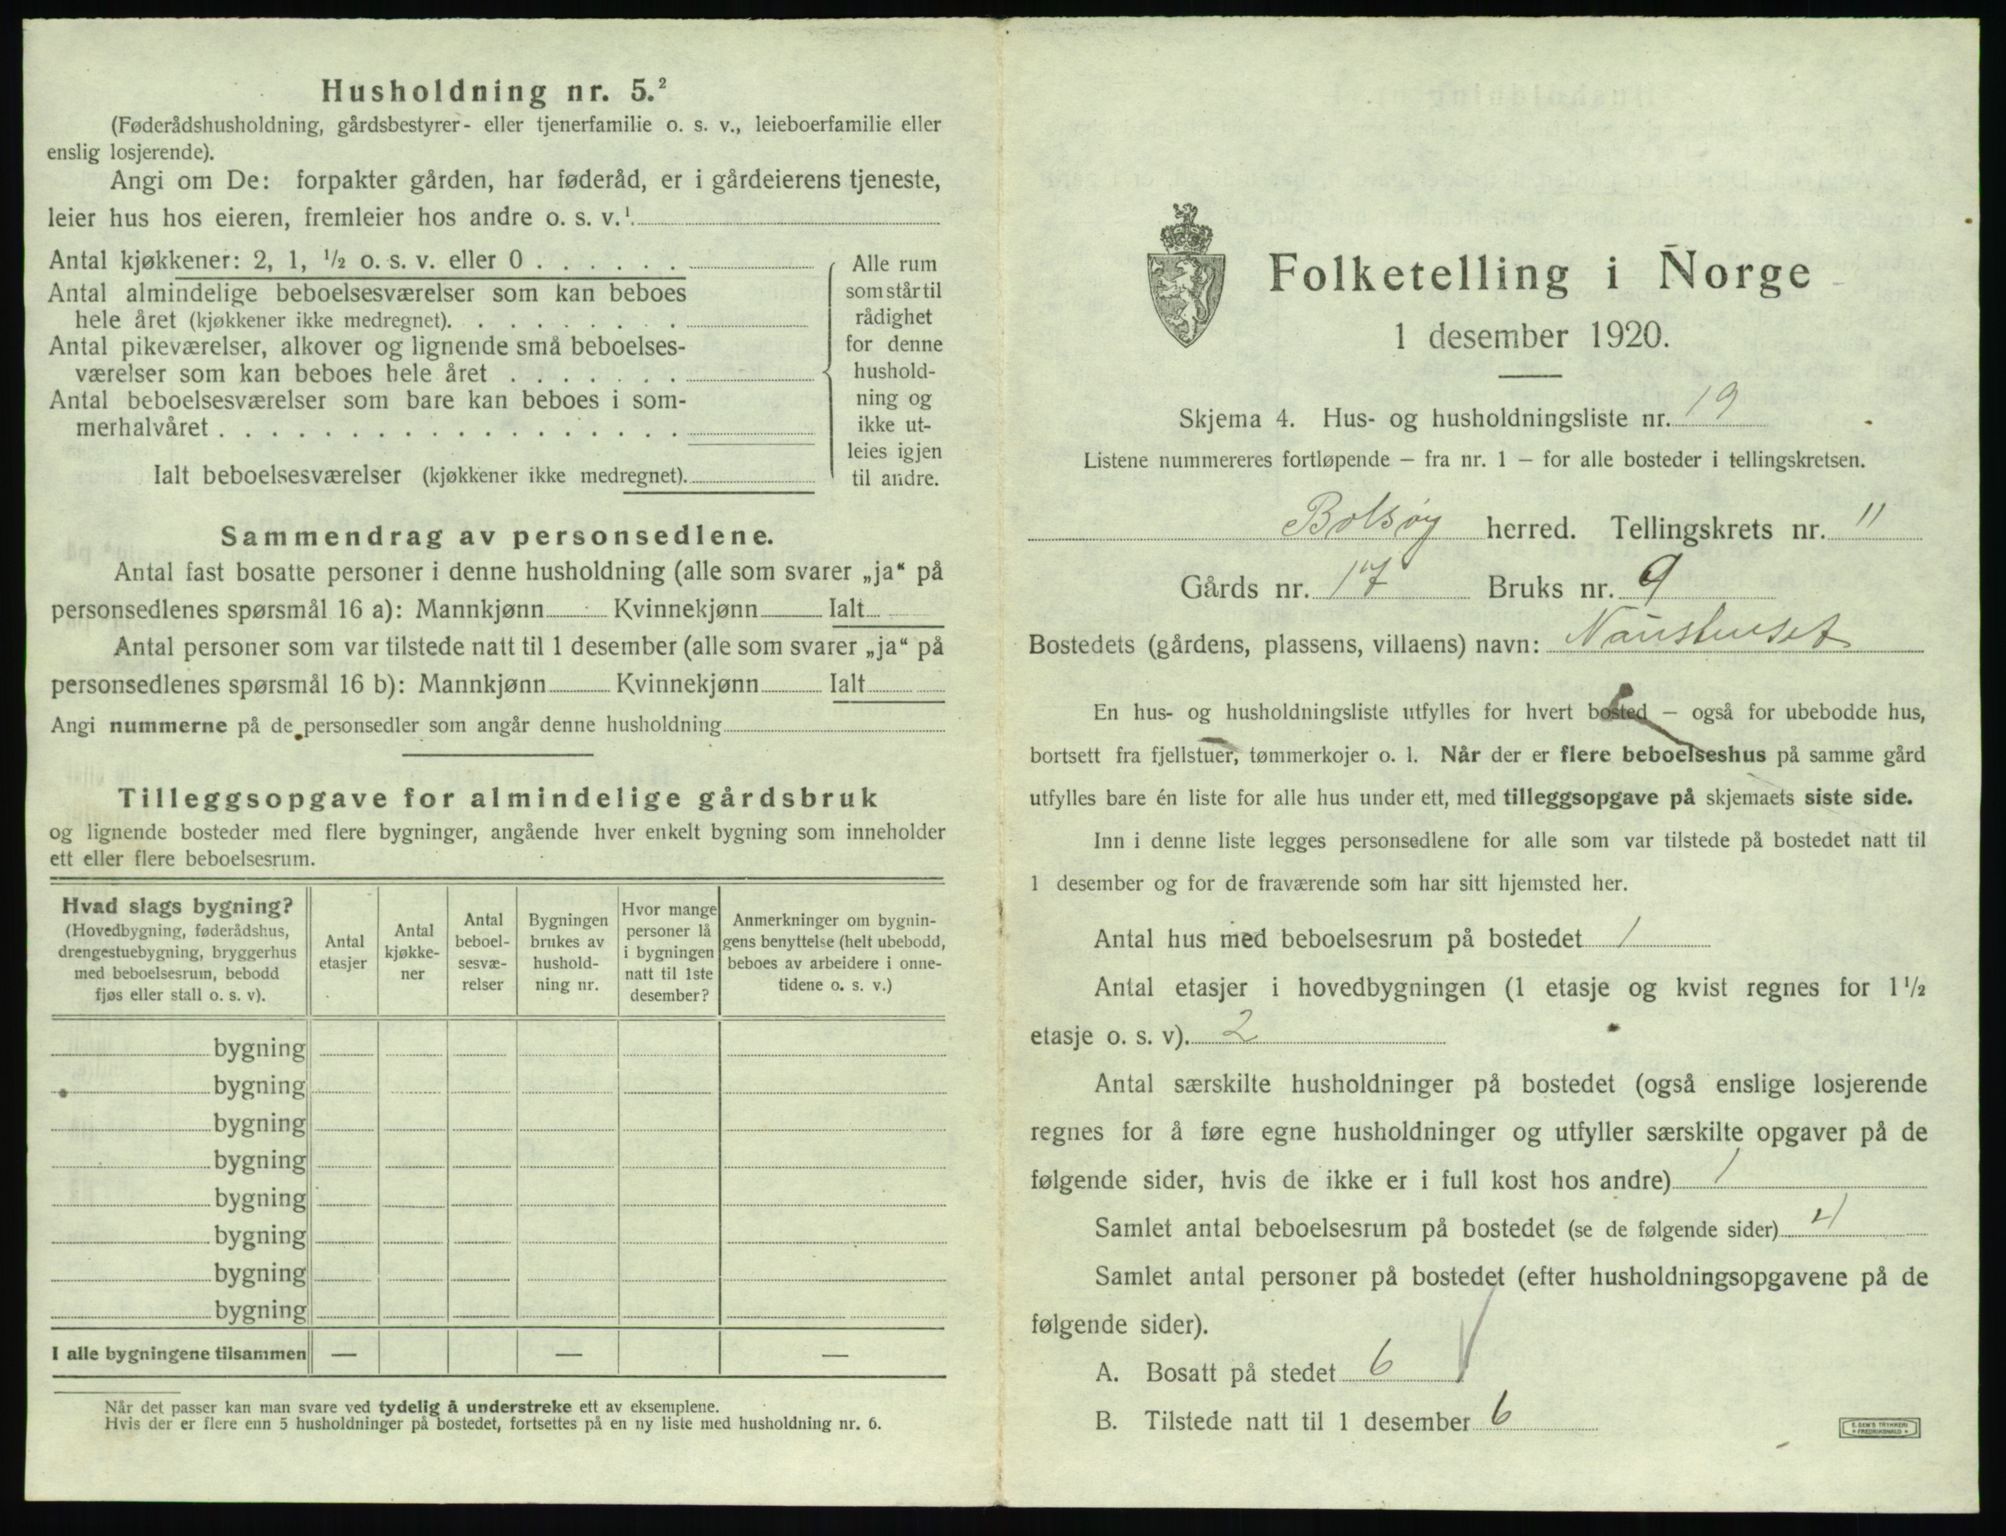 Husholdning nr. 5.²
(Føderådshusholdning, gårdsbestyrer- eller tjenerfamilie o. s. v., leieboerfamilie eller
enslig losjerende).
Angi om De: forpakter gården, har føderåd, er i gårdeierens tjeneste,
leier hus hos eieren, fremleier hos andre o. s. v.¹
Antal kjøkkener: 2, 1, ½ o. s. v. eller 0 . . . . . .
Antal almindelige beboelsesværelser som kan beboes
hele året (kjøkkener ikke medregnet). . . . . . . . .
Antal pikeværelser, alkover og lignende små beboelses-
værelser som kan beboes hele året . . . . . . .
Antal beboelsesværelser som bare kan beboes i som-
merhalvåret . . . . . . . . . . . . . . . . . .
Ialt beboelsesværelser (kjøkkener ikke medregnet).
Alle rum
som står til
rådighet
for denne
hushold-
ning og
ikke ut-
leies igjen
til andre.
Sammendrag av personsedlene.
Antal fast bosatte personer i denne husholdning (alle som svarer „ja“ på
personsedlenes spørsmål 16 a): Mannkjønn Kvinnekjønn Ialt
Antal personer som var tilstede natt til 1 desember (alle som svarer „ja“ på
personsedlenes spørsmål 16 b): Mannkjønn Kvinnekjønn Ialt
Angi nummerne på de personsedler som angår denne husholdning
Tilleggsopgave for almindelige gårdsbruk
og lignende bosteder med flere bygninger, angående hver enkelt bygning som inneholder
ett eller flere beboelsesrum.
Hvad slags bygning?
(Hovedbygning, føderådshus,
drengestuebygning, bryggerhus
med beboelsesrum, bebodd
fjøs eller stall o. s. v).
Antal
etasjer
Antal
kjøkke-
ner
Antal
beboel-
sesvæ-
relser
Bygningen
brukes av
hushold-
ning nr.
Hvor mange
personer lå
i bygningen
natt til 1ste
desember?
Anmerkninger om bygnin-
gens benyttelse (helt ubebodd,
beboes av arbeidere i onne-
tidene o. s. v.)
bygning
bygning
bygning
bygning
bygning
bygning
bygning
bygning
I alle bygningene tilsammen — — —
Når det passer kan man svare ved tydelig å understreke ett av eksemplene.
Hvis der er flere enn 5 husholdninger på bostedet, fortsettes på en ny liste med husholdning nr. 6.
Folketelling i Norge
1 desember 1920.
Skjema 4. Hus- og husholdningsliste nr. 19
Listene nummereres fortløpende – fra nr. 1 – for alle bosteder i tellingskretsen.
Bolsøy herred. Tellingskrets nr. 11
Gårds nr. 17 Bruks nr. 9
Bostedets (gårdens, plassens, villaens) navn: Nausthuset
En hus- og husholdningsliste utfylles for hvert bosted – også for ubebodde hus,
bortsett fra fjellstuer, tømmerkojer o. l. Når der er flere beboelseshus på samme gård
utfylles bare én liste for alle hus under ett, med tilleggsopgave på skjemaets siste side.
Inn i denne liste legges personsedlene for alle som var tilstede på bostedet natt til
1 desember og for de fraværende som har sitt hjemsted her.
Antal hus med beboelsesrum på bostedet 1
Antal etasjer i hovedbygningen (1 etasje og kvist regnes for 1½
etasje o. s. v). 2
Antal særskilte husholdninger på bostedet (også enslige losjerende
regnes for å føre egne husholdninger og utfyller særskilte opgaver på de
følgende sider, hvis de ikke er i full kost hos andre) 1
Samlet antal beboelsesrum på bostedet (se de følgende sider) 4
Samlet antal personer på bostedet (efter husholdningsopgavene på de
følgende sider).
A. Bosatt på stedet 6
B. Tilstede natt til 1 desember 6